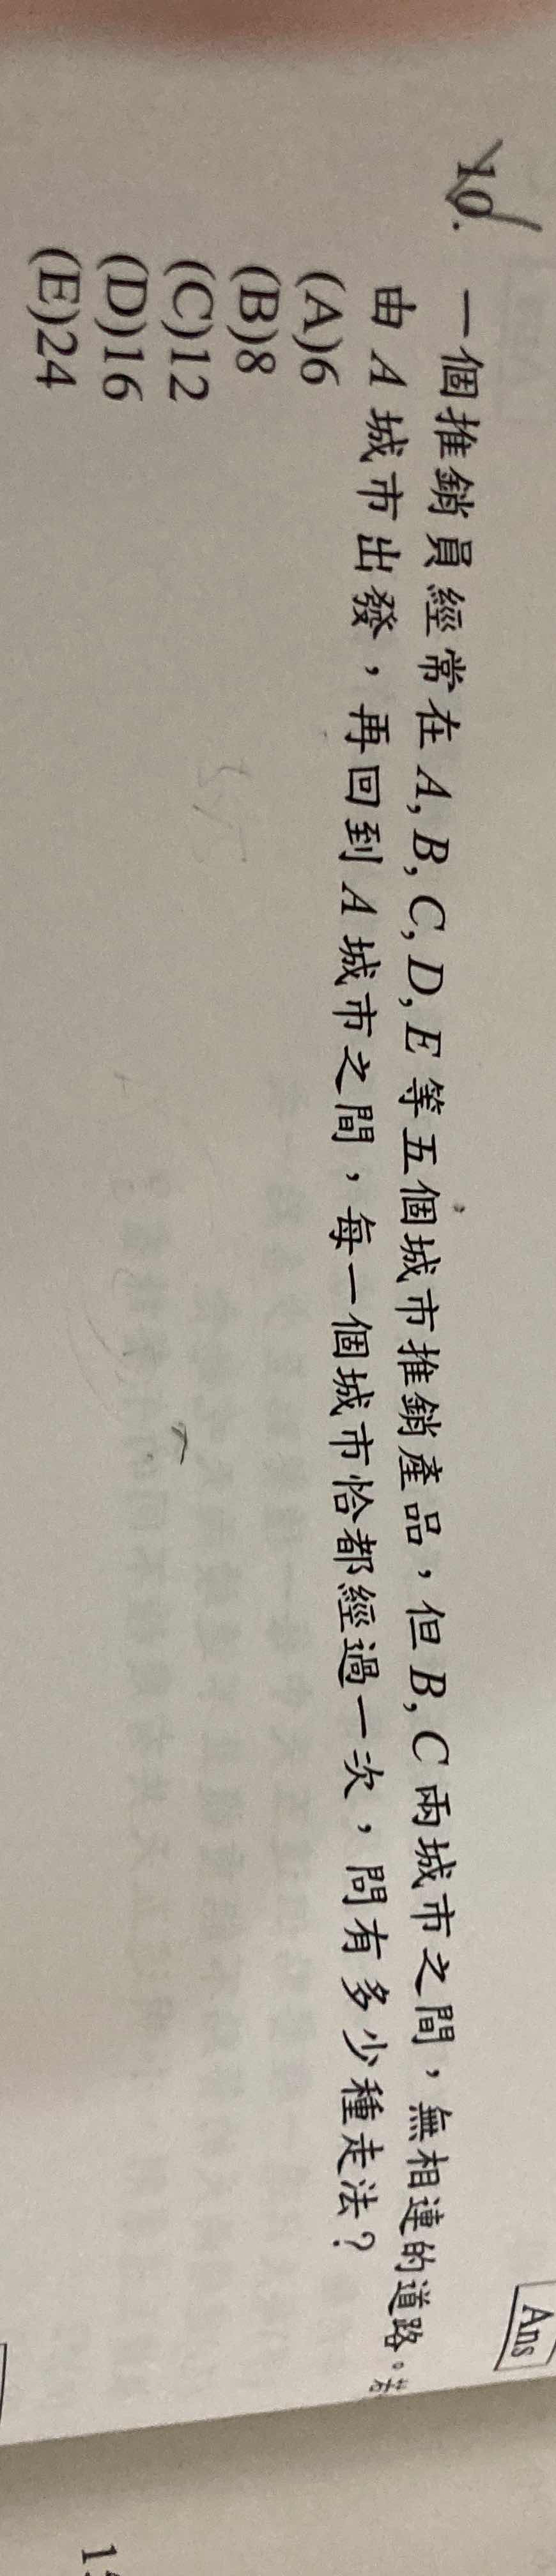 10.
一個推銷員經常在 A, B, C, D, E 等五個城市推銷產品，但 B, C 兩城市之間，無相連的道路。若
由 A 城市出發，再回到 A 城市之間，每一個城市恰都經過一次，問有多少種走法？
(A)6
(B)8
(C)12
(D)16
(E)24
Ans